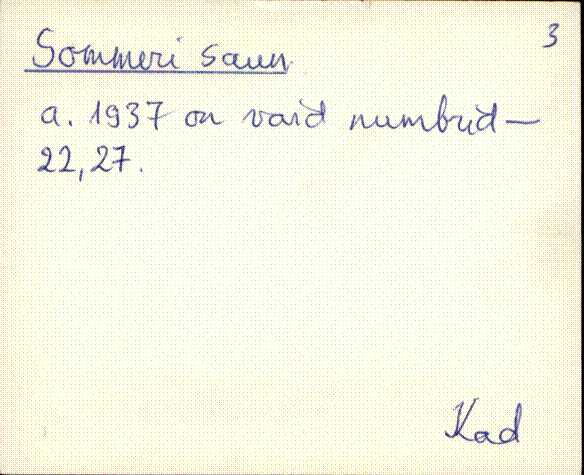 3
Sommeri saun
a. 1937 on vaid numbrid —
22, 27.
Kad